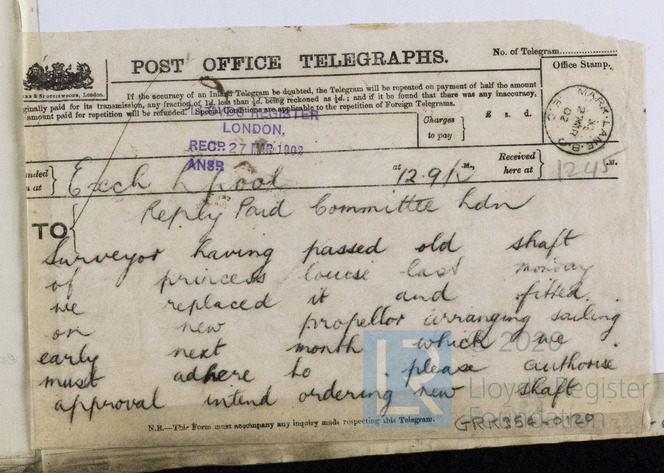 POST OFFICE TELEGRAPHS.
No. of Telegram
If the accuracy of an Inland Telegram be doubted, the Telegram will be repeated on payment of half the amount
originally paid for its transmission, any fraction of 1d. less than ½d. being reckoned as ½d.; and if it be found that there was any inaccuracy,
amount paid for repetition will be refunded. Special Conditions are applicable to the repetition of Foreign Telegrams.
Office Stamp.
MARK LANE B.O.
27 MR 02
REGISTER
LONDON,
RECD 27 MAR 1902
ANSR
Charges to pay
£ s. d.
Handed in at
Exch Lpool
at
12.9
M.,
Received here at
12 45
M.
TO
Reply Paid Committee Ldn
Surveyor having passed old shaft
of princess louise last monday
we replaced it and fitted
on new propellor arranging sailing
early next month which we
must adhere to please authorise
approval intend ordering new shaft
N.B.—This Form must accompany any inquiry made respecting this Telegram.
GRK354-0129
LR
© 2020
Lloyd's Register
Foundation